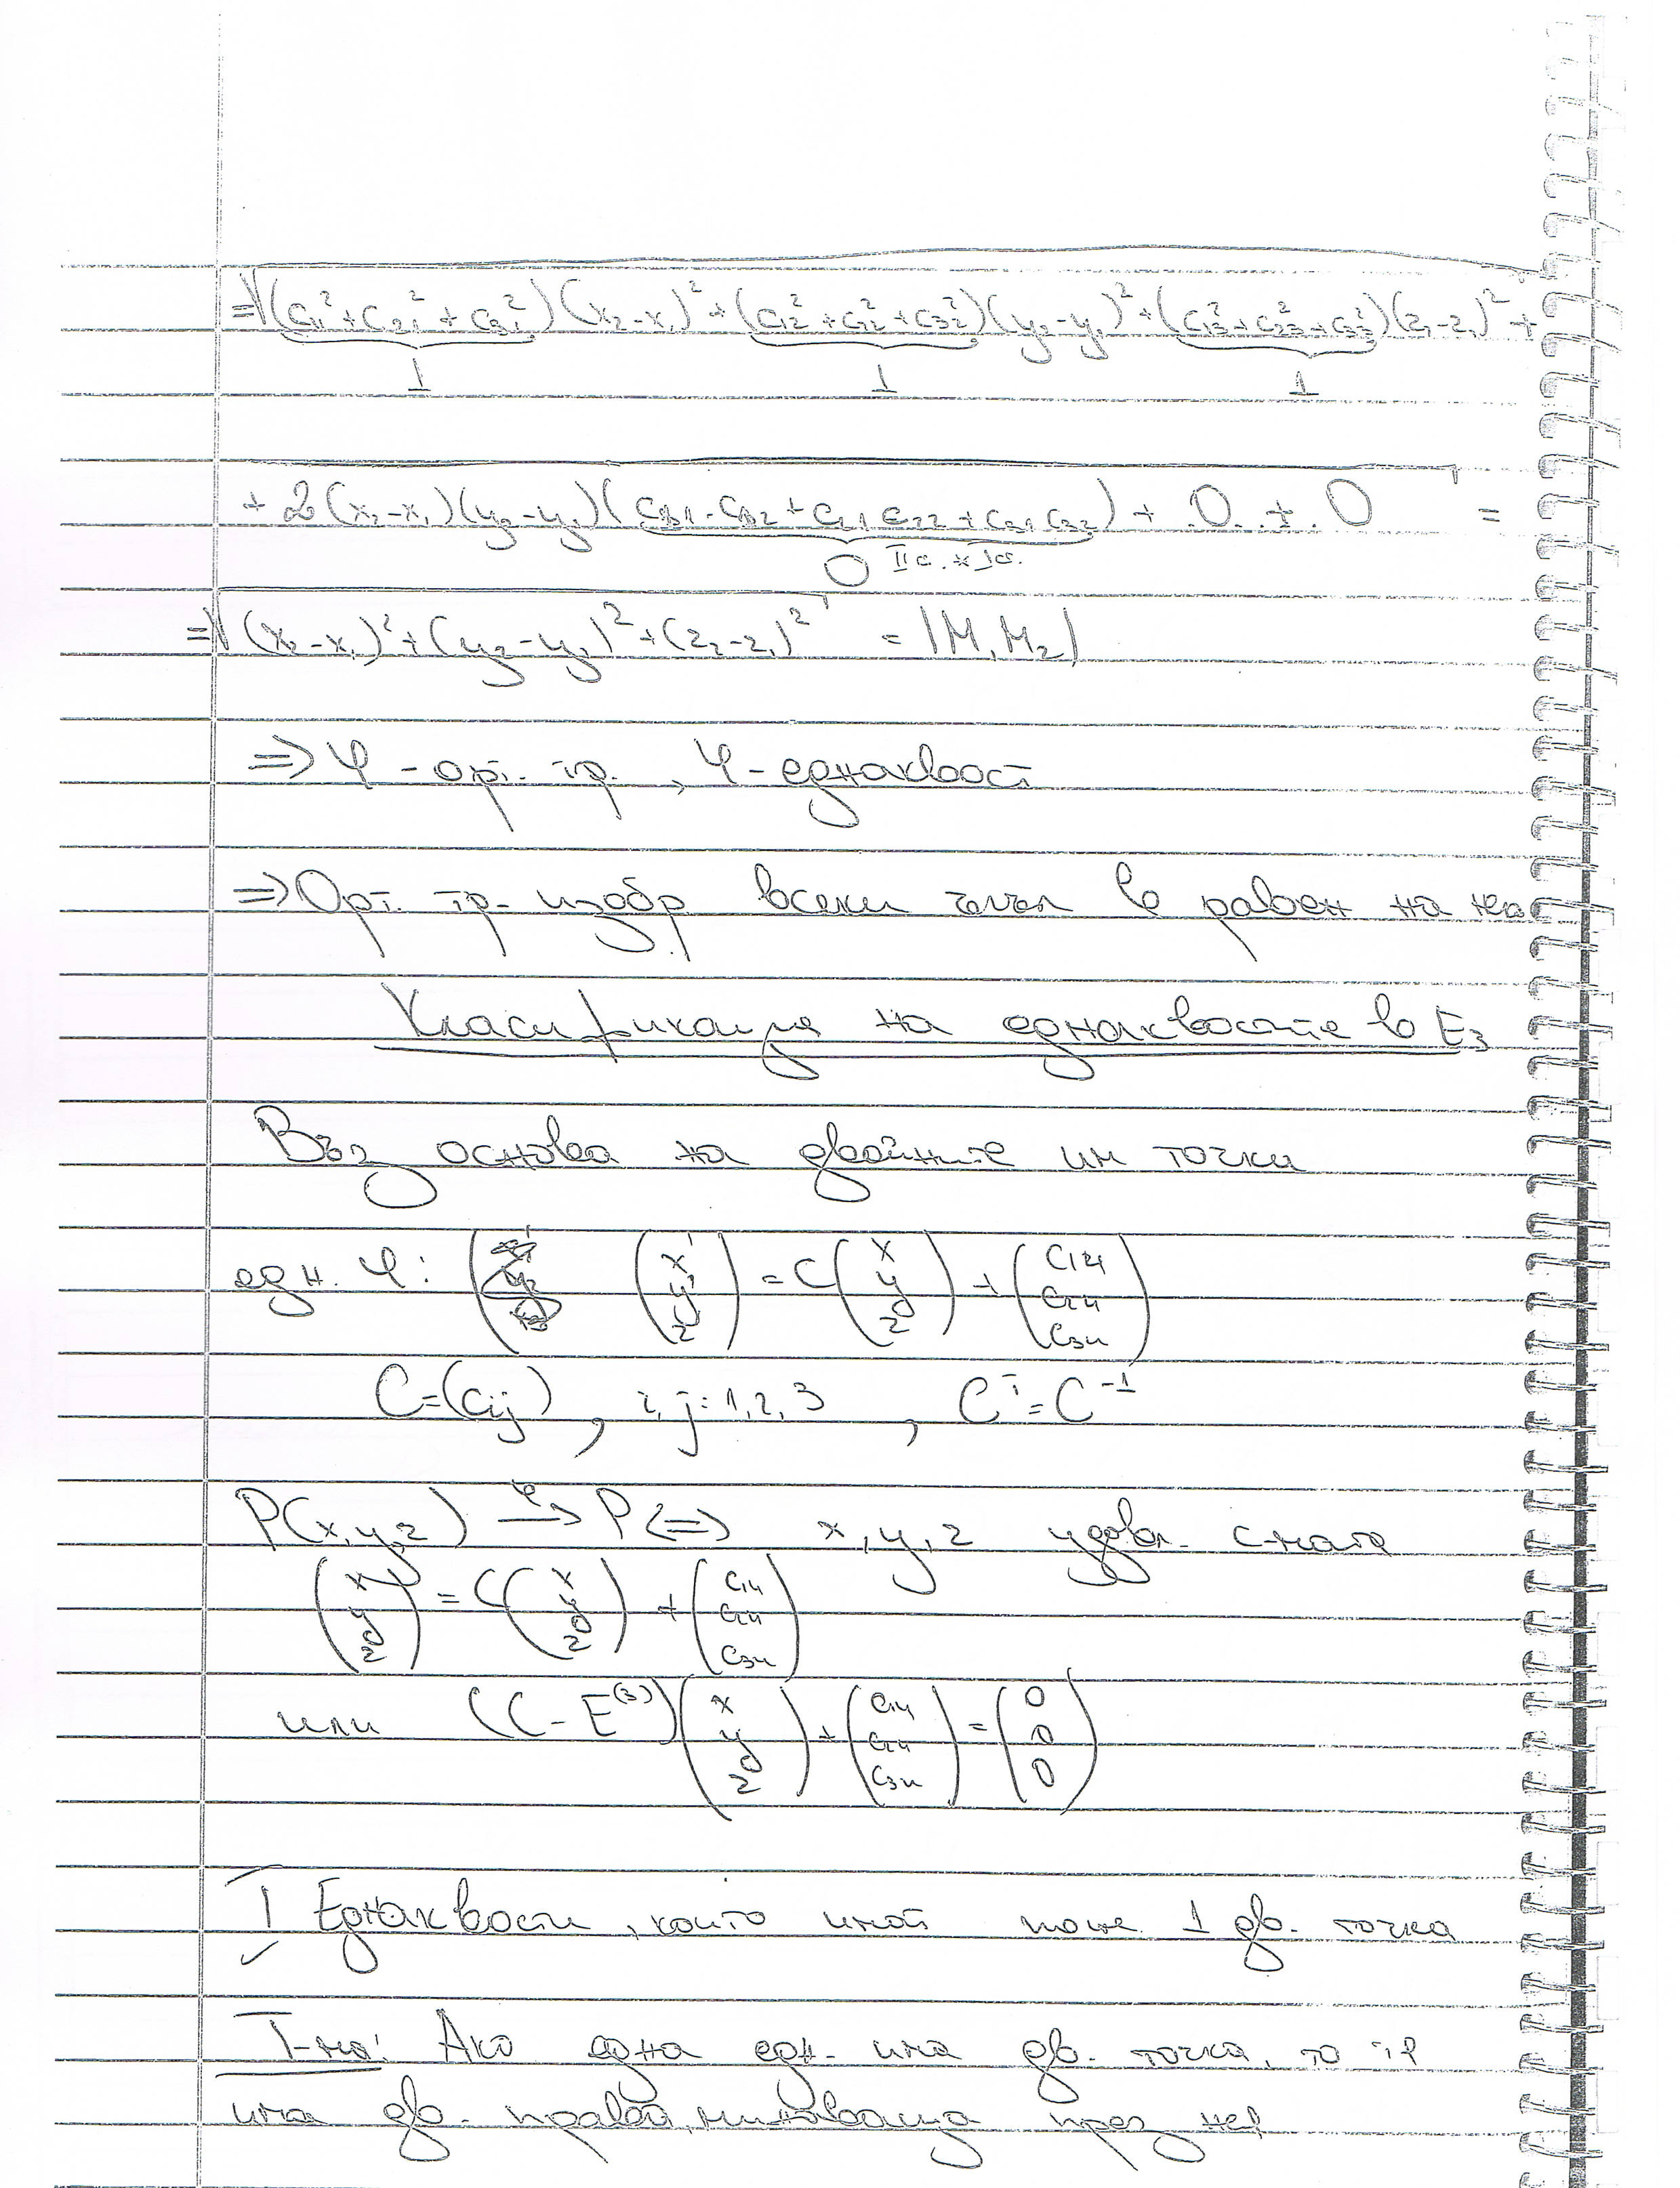 =√(c₁₁² + c₂₁² + c₃₁²)(x₂-x₁)² + (c₁₂² + c₁₂² + c₃₂²)(y₂-y₁)² + (c₁₃² + c₂₃² + c₃₃²)(z₂-z₁)² +
1 1 1
+ 2(x₂-x₁)(y₂-y₁)(c₁₁.c₁₂ + c₂₁c₂₂ + c₃₁c₃₂) + 0 + 0 =
0 IIс. * Iс.
=√(x₂-x₁)² + (y₂-y₁)² + (z₂-z₁)² = |M₁M₂|
=> φ - орт. тр., φ - еднаквост
=> Орт. тр. изобр. всеки ъгъл в равен на нег
Класификация на еднаквостите в E₃
Въз основа на двойните им точки
едн. φ: (x' y' z') = C(x y z) + (c₁₄ c₂₄ c₃₄)
C=(cᵢⱼ), i,j=1,2,3, Cᵀ=C⁻¹
P(x,y,z) →φ P <=> x,y,z удовл. с-мата
(x y z) = C(x y z) + (c₁₄ c₂₄ c₃₄)
или (C-E⁽³⁾)(x y z) + (c₁₄ c₂₄ c₃₄) = (0 0 0)
I Еднаквости, които имат поне 1 дв. точка
Т-ма: Ако една едн. има дв. точка, то тя
има дв. права, минаваща през нея